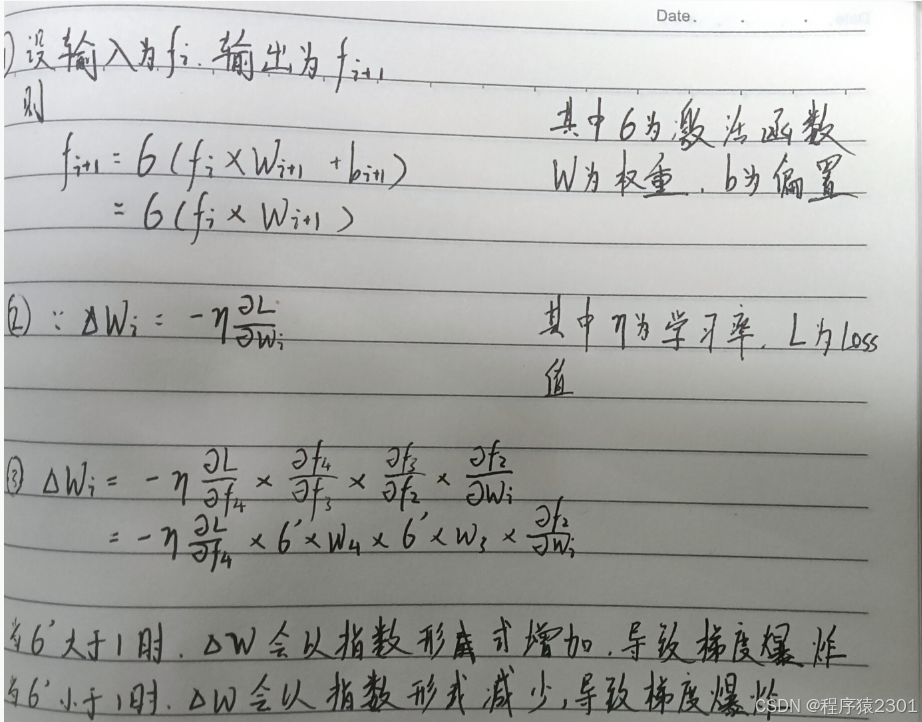 Date.
1) 设输入为fi.输出为fi+1
则
fi+1 = 6(fi × Wi+1 + bi+1)
= 6(fi × Wi+1)
其中6为激活函数
W为权重.b为偏置
(2) ∵ ΔWi = -η ∂L/∂Wi
其中η为学习率.L为Loss
值
③ ΔWi = -η ∂L/∂f4 × ∂f4/∂f3 × ∂f3/∂f2 × ∂f2/∂Wi
= -η ∂L/∂f4 × 6' × W4 × 6' × W3 × ∂f2/∂Wi
当6'大于1时.ΔW会以指数形式增加.导致梯度爆炸
当6'小于1时.ΔW会以指数形式减少,导致梯度爆炸
CSDN @程序猿2301